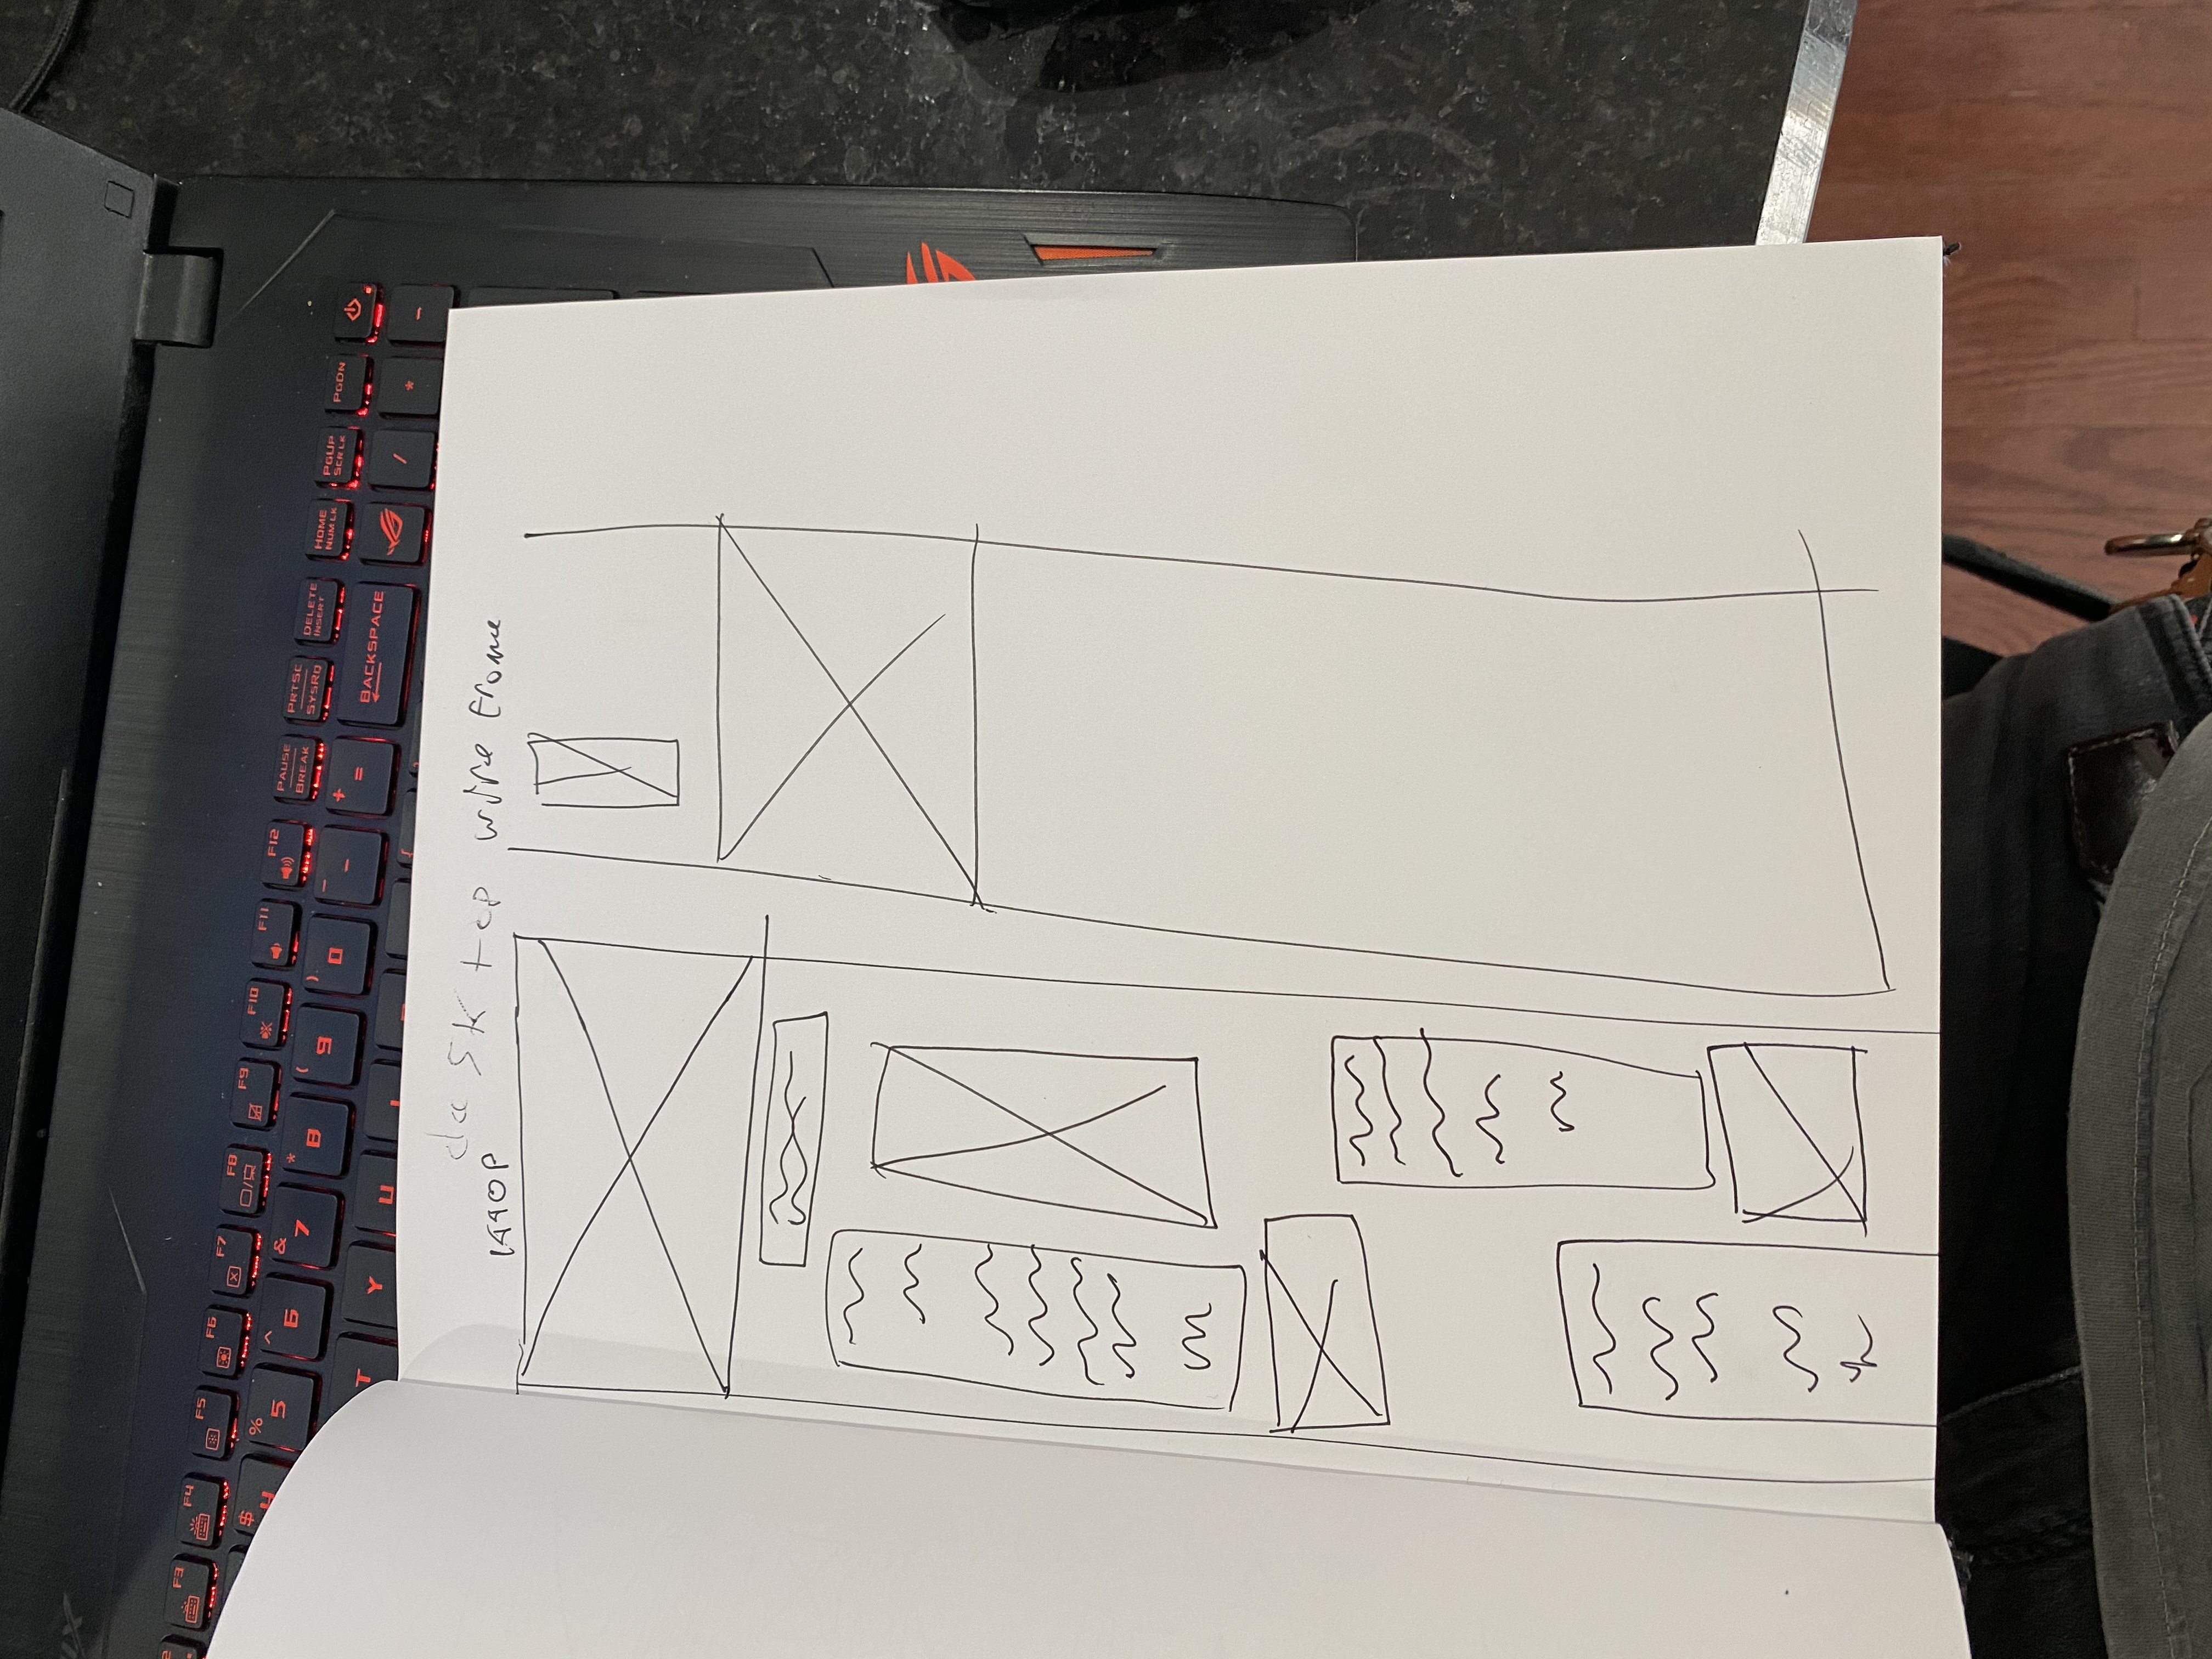 F3 F4 F5 F6 F7 F8 F9 F10 F11 F12
PAUSE BREAK PRTSC SYSRQ DELETE INSERT HOME NUM LK PGUP SCR LK PGDN
$ 4 % 5 ^ 6 & 7 * 8 ( 9 ) 0 - + = BACKSPACE / * -
T Y U
desktop wire frame
1440P